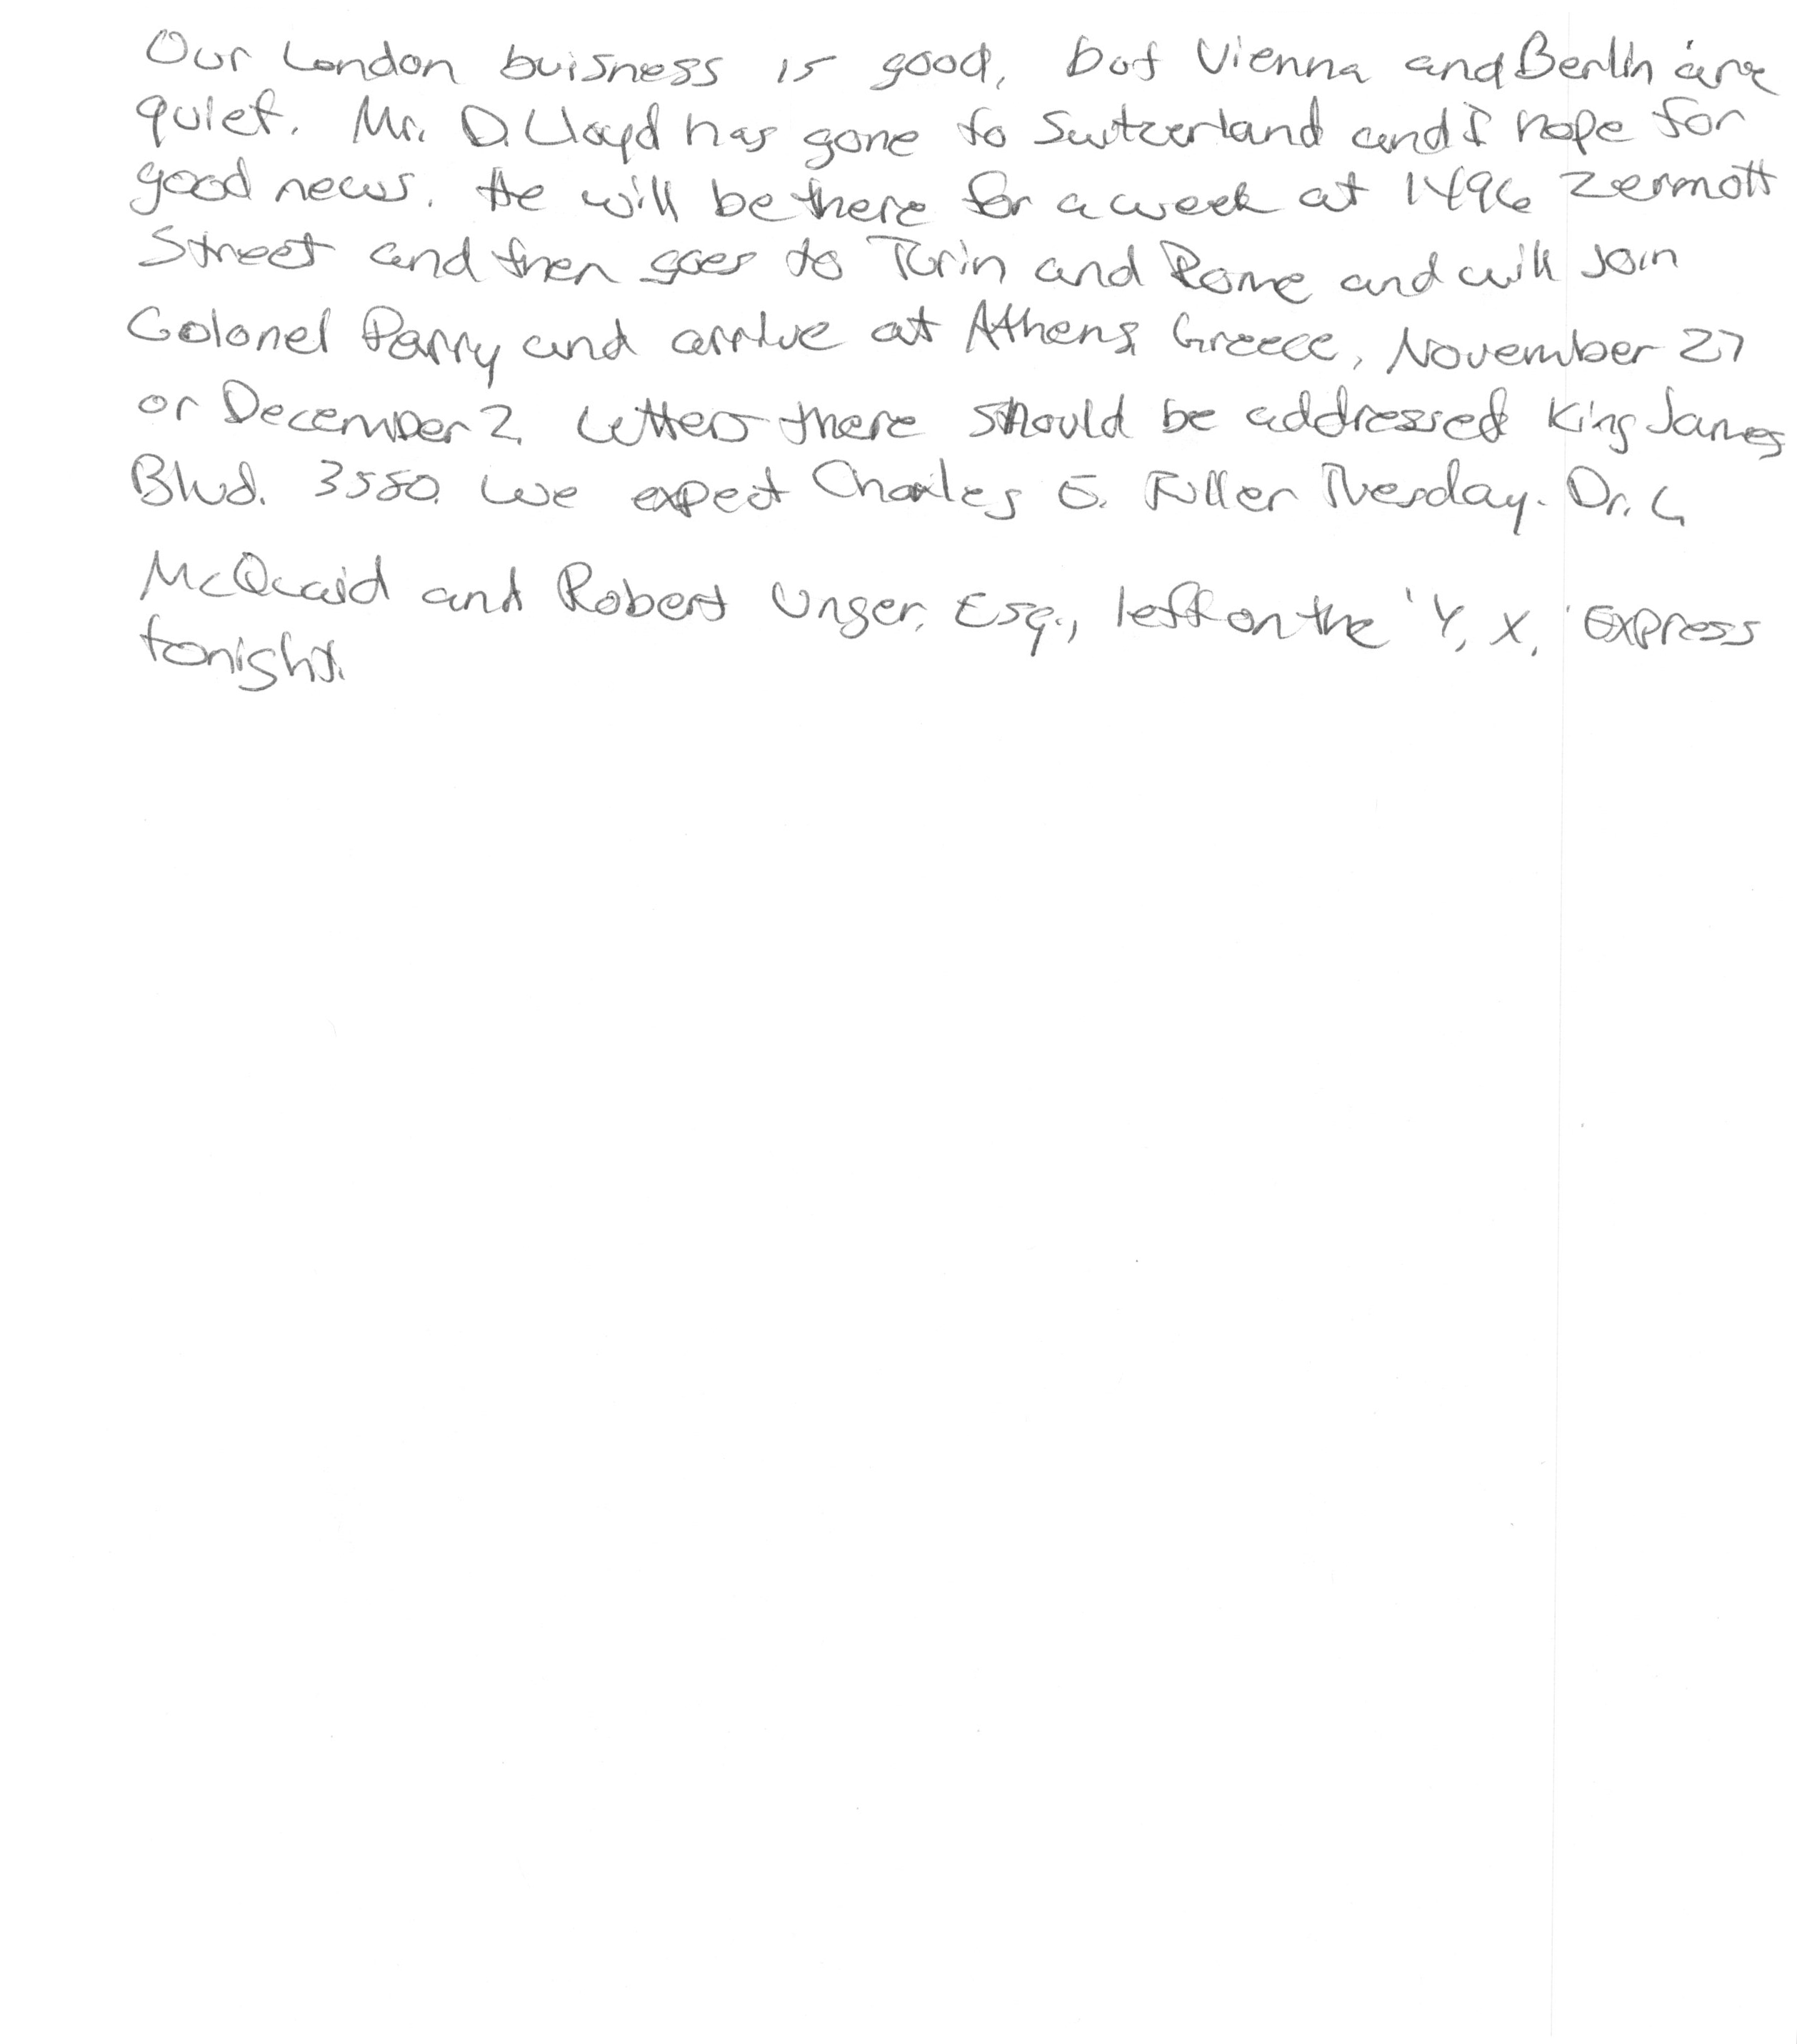 Our London buisness is good, but Vienna and Berlin are
quiet. Mr. D. Lloyd has gone to Switzerland and I hope for
good news. He will be there for a week at 1496 Zermott
Street and then goes to Turin and Rome and will join
Colonel Parry and arrive at Athens, Greece, November 27
or December 2. Letters there should be addressed King James
Blvd. 3580. We expect Charles E. Fuller Tuesday. Dr. L
McQuaid and Robert Unger, Esq., left on the 'Y, X,' Express
tonight.